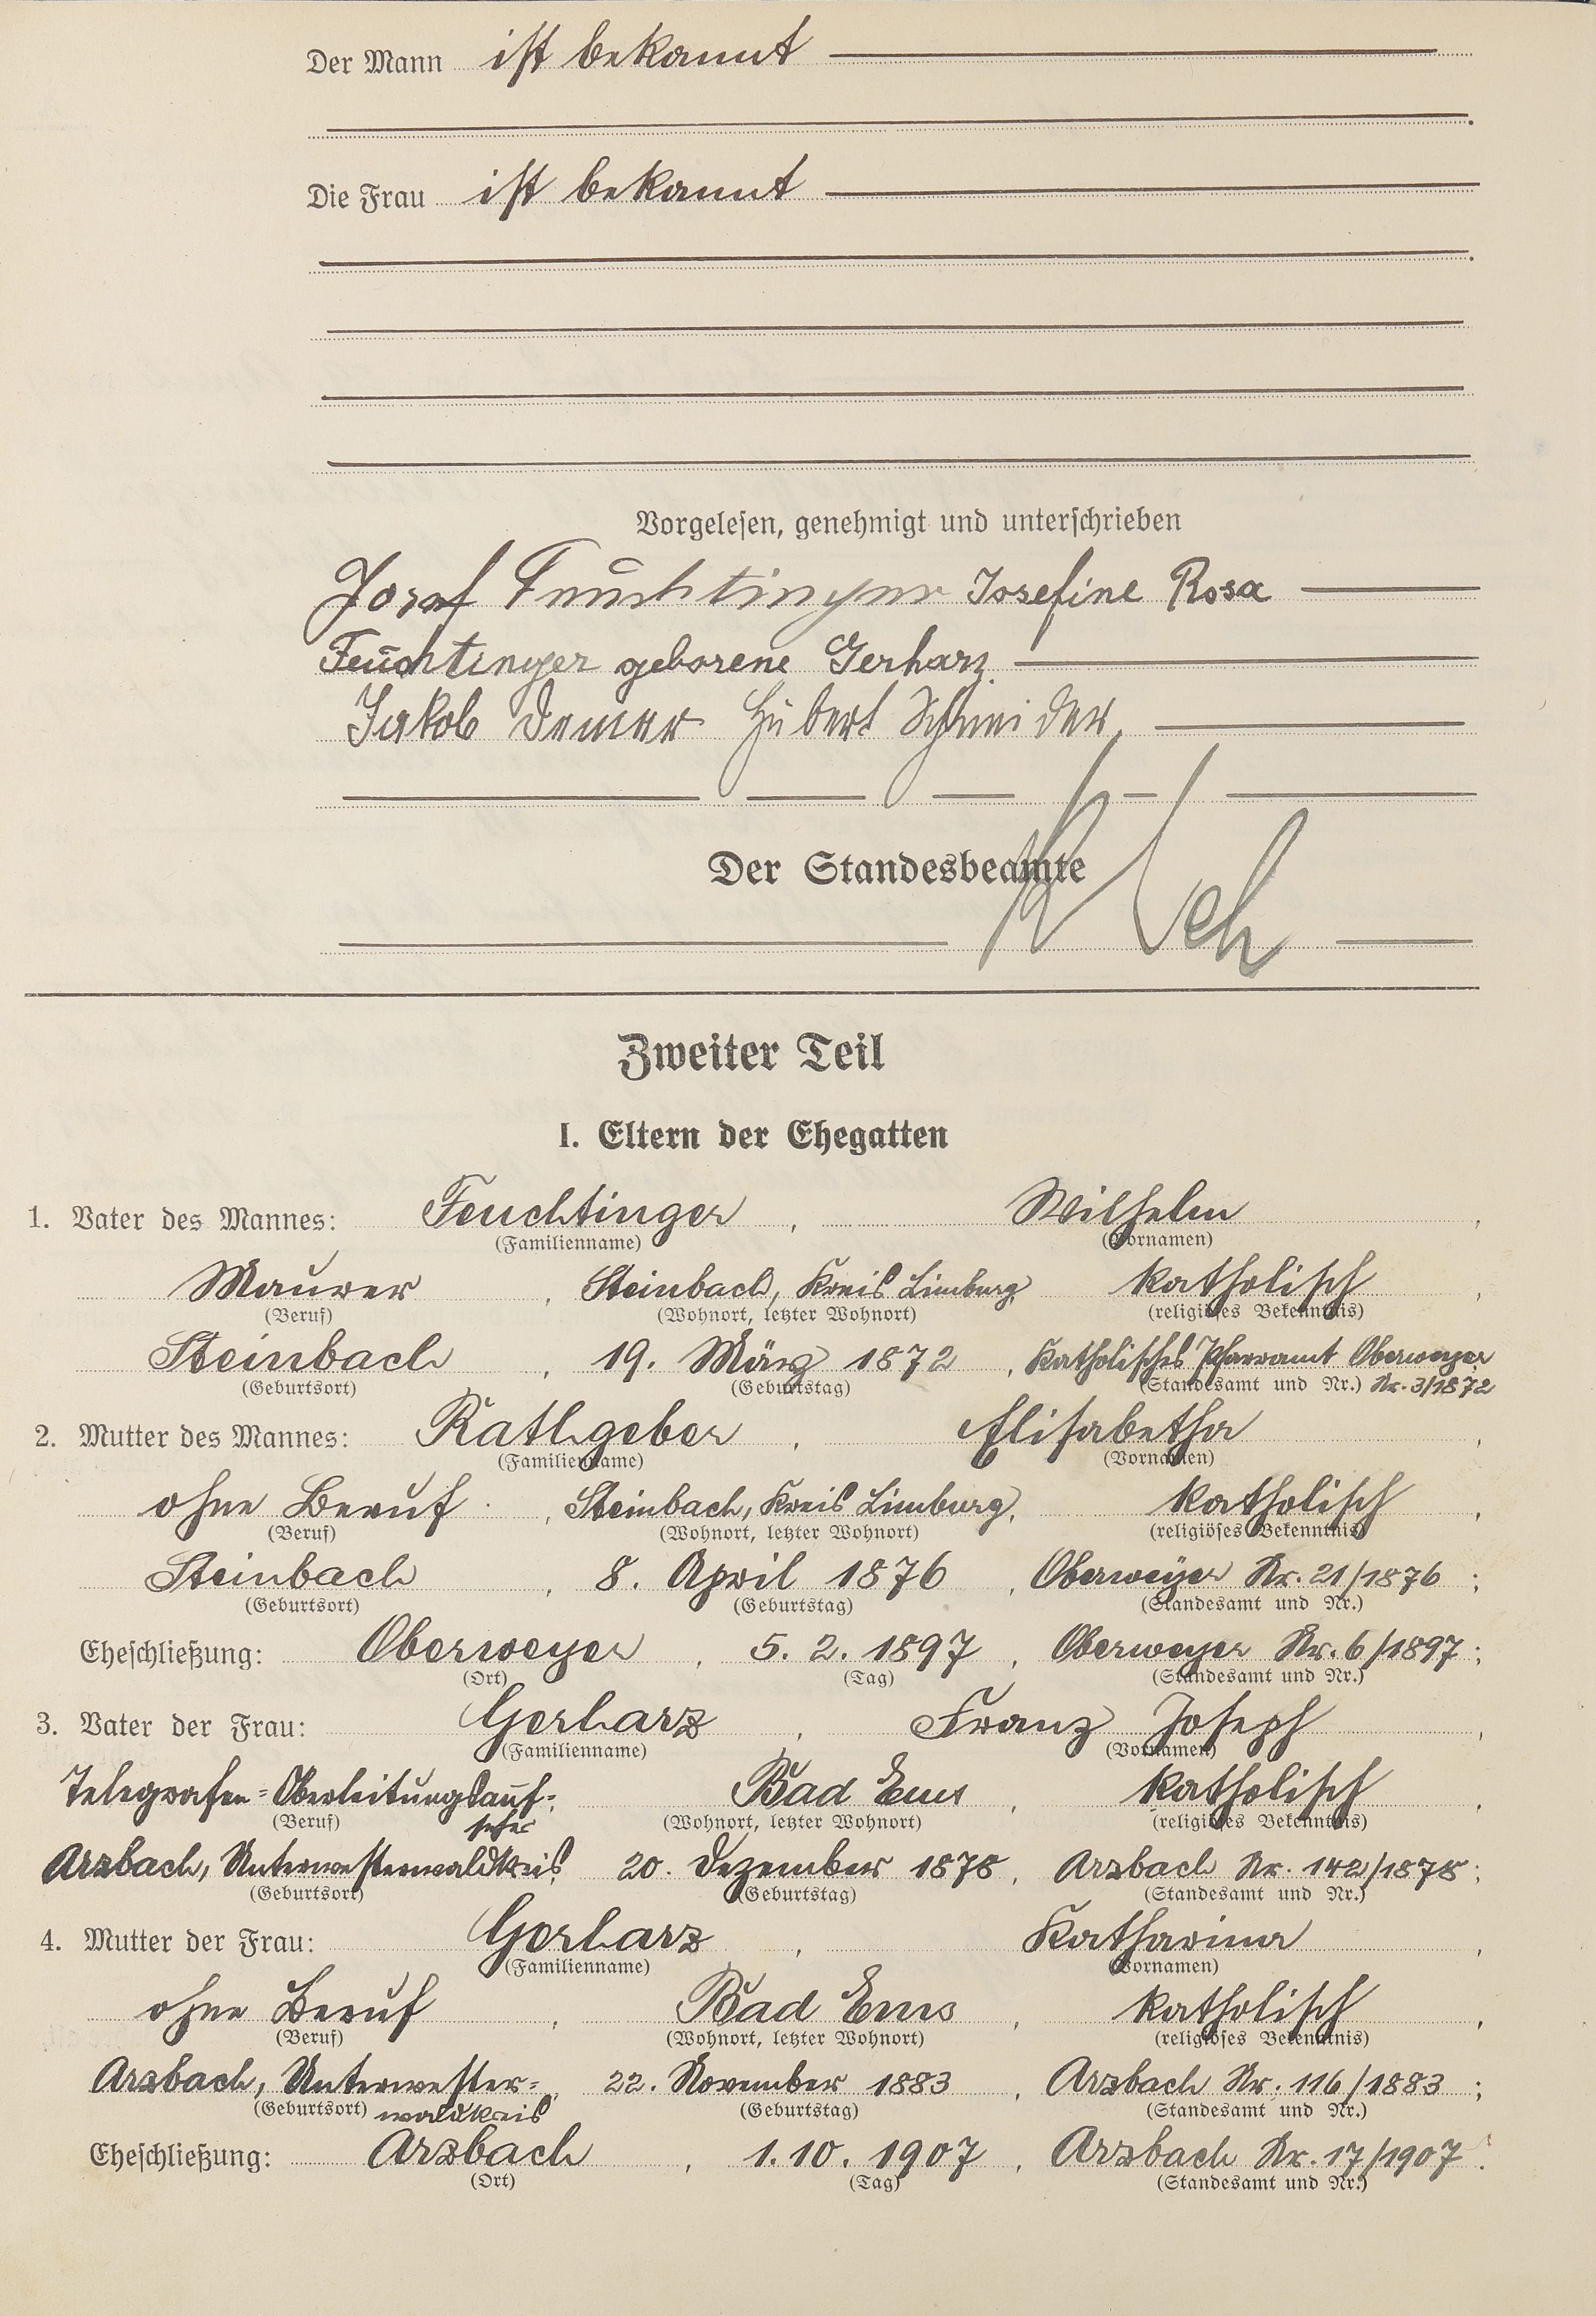 Der Mann ist bekannt
Die Frau ist bekannt
Vorgelesen, genehmigt und unterschrieben
Josef Feuchtinger Josefine Rosa
Feuchtinger geborene Gerharz
Jakob Hubert Schneider
Der Standesbeamte
Zweiter Teil
I. Eltern der Ehegatten
1. Vater des Mannes: Feuchtinger, Wilhelm,
(Familienname) (Vornamen)
Maurer, Steinbach, Kreis Limburg, katholisch,
(Beruf) (Wohnort, letzter Wohnort) (religiöses Bekenntnis)
Steinbach, 19. März 1872, Katholisches Pfarramt Oberweyer
(Geburtsort) (Geburtstag) (Standesamt und Nr.) Nr. 3/1872
2. Mutter des Mannes: Rathgeber, Elisabetha,
(Familienname) (Vornamen)
ohne Beruf, Steinbach, Kreis Limburg, katholisch,
(Beruf) (Wohnort, letzter Wohnort) (religiöses Bekenntnis)
Steinbach, 8. April 1876, Oberweÿer Nr. 21/1876;
(Geburtsort) (Geburtstag) (Standesamt und Nr.)
Eheschließung: Oberweyer, 5. 2. 1897, Oberweyer Nr. 6/1897;
(Ort) (Tag) (Standesamt und Nr.)
3. Vater der Frau: Gerharz, Franz Joseph,
(Familienname) (Vornamen)
Telegrafen-Oberleitungsauf-, Bad Ems, katholisch,
(Beruf) seher (Wohnort, letzter Wohnort) (religiöses Bekenntnis)
Arzbach, Unterwesterwaldkreis, 20. Dezember 1878, Arzbach Nr. 142/1878;
(Geburtsort) (Geburtstag) (Standesamt und Nr.)
4. Mutter der Frau: Gerharz, Katharina,
(Familienname) (Vornamen)
ohne Beruf, Bad Ems, katholisch,
(Beruf) (Wohnort, letzter Wohnort) (religiöses Bekenntnis)
Arzbach, Unterwester-, 22. November 1883, Arzbach Nr. 116/1883;
(Geburtsort) waldkreis (Geburtstag) (Standesamt und Nr.)
Eheschließung: Arzbach, 1. 10. 1907, Arzbach Nr. 17/1907.
(Ort) (Tag) (Standesamt und Nr.)